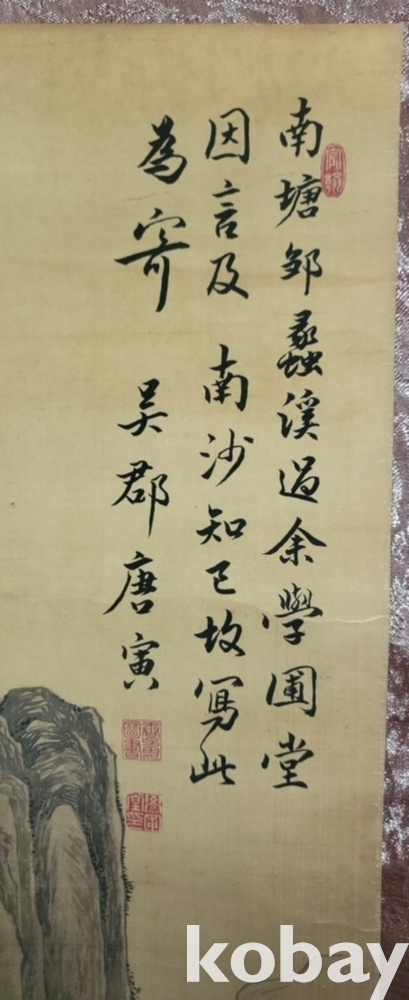 南塘邹蠡溪過余學圃堂
因言及 南沙知己故寫此
為寄 吴郡唐寅
kobay